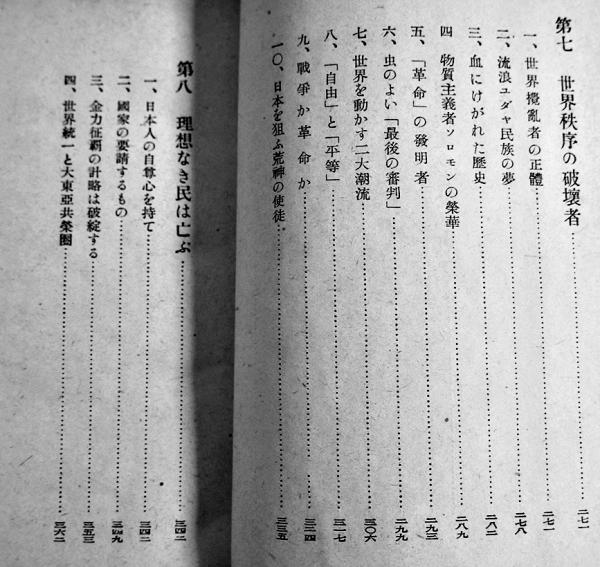 第七 世界秩序の破壞者……二七一
一、世界攪亂者の正體……二七一
二、流浪ユダヤ民族の夢……二七八
三、血にけがれた歴史……二八二
四 物質主義者ソロモンの榮華……二八九
五、「革命」の發明者……二九三
六、虫のよい「最後の審判」……二九九
七、世界を動かす二大潮流……三〇六
八、「自由」と「平等」……三一七
九、戰爭か革命か……三二四
一〇、日本を狙ふ荒神の使徒……三三五
第八 理想なき民は亡ぶ……三四二
一、日本人の自尊心を持て……三四二
二、國家の要請するもの……三四九
三、金力征覇の計略は破綻する……三五三
四、世界統一と大東亞共榮圏……三六二